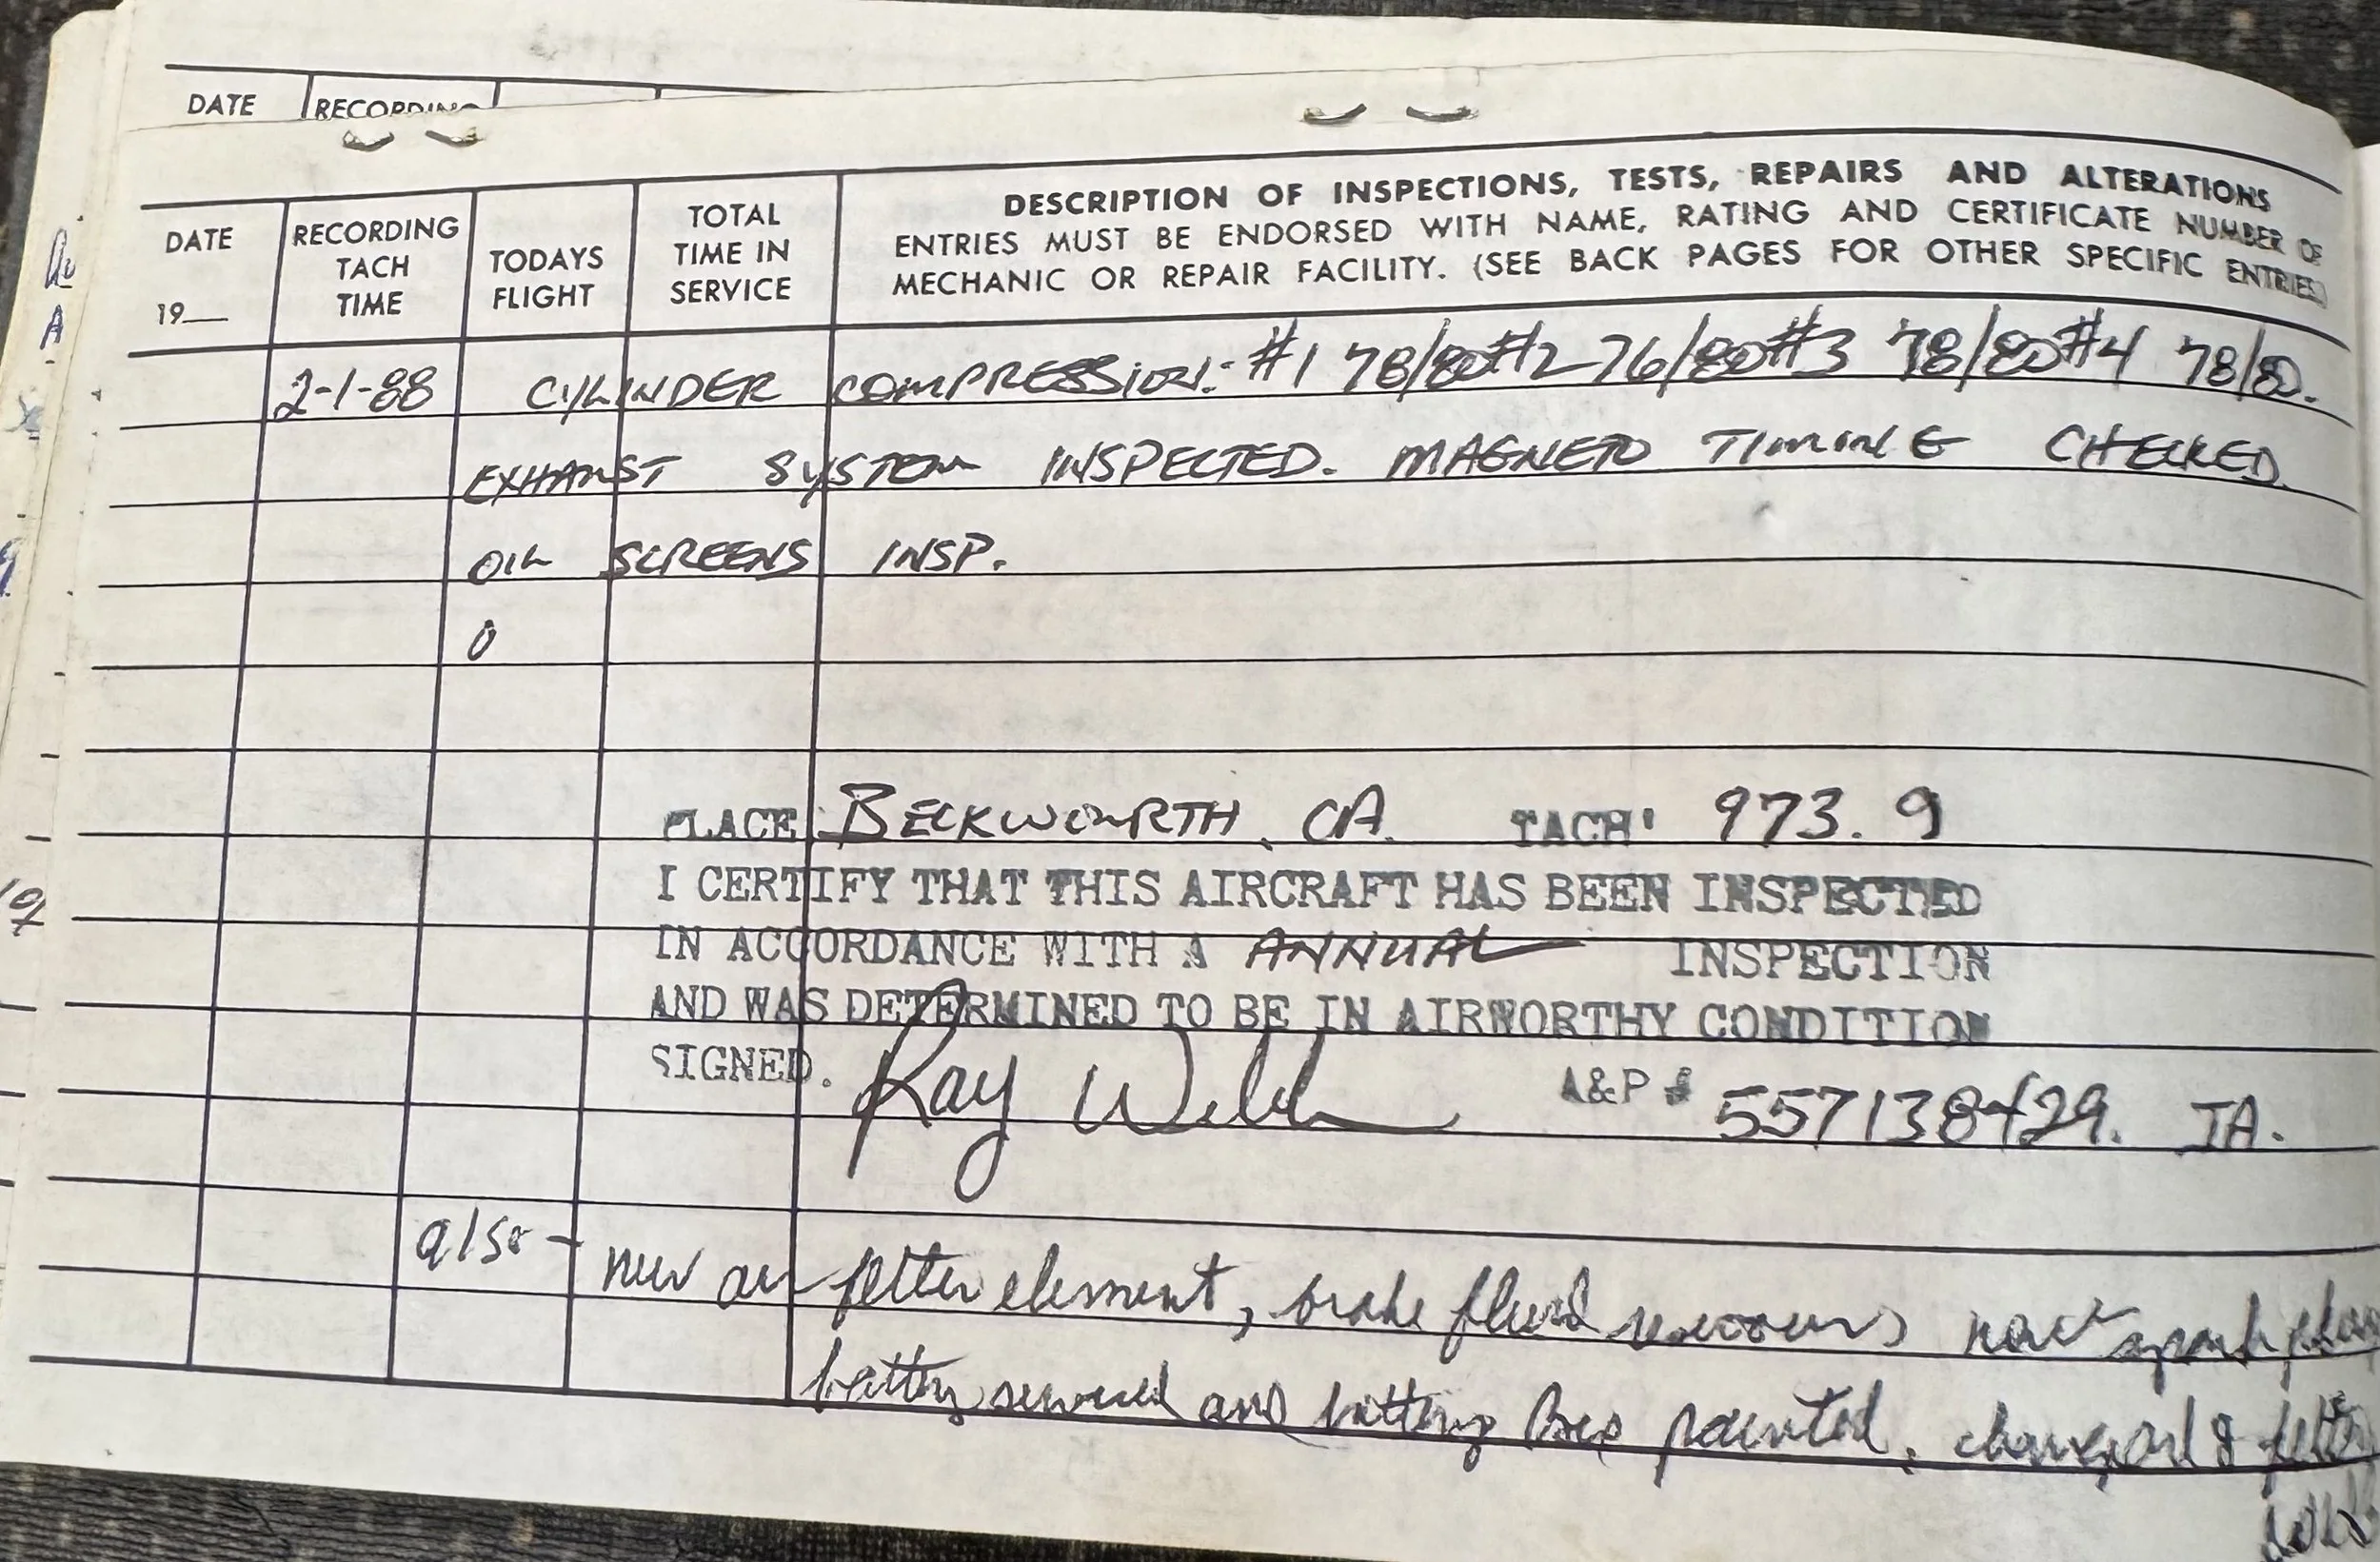 DATE RECORDING
DATE 19__ RECORDING TACH TIME TODAYS FLIGHT TOTAL TIME IN SERVICE
DESCRIPTION OF INSPECTIONS, TESTS, REPAIRS AND ALTERATIONS
ENTRIES MUST BE ENDORSED WITH NAME, RATING AND CERTIFICATE NUMBER OF
MECHANIC OR REPAIR FACILITY. (SEE BACK PAGES FOR OTHER SPECIFIC ENTRIES)
2-1-88 CYLINDER COMPRESSION: #1 78/80 #2 76/80 #3 78/80 #4 78/80.
EXHAUST SYSTEM INSPECTED. MAGNETO TIMING CHECKED.
OIL SCREENS INSP.
0
PLACE: BECKWORTH, CA. TACH: 973.9
I CERTIFY THAT THIS AIRCRAFT HAS BEEN INSPECTED
IN ACCORDANCE WITH A ANNUAL INSPECTION
AND WAS DETERMINED TO BE IN AIRWORTHY CONDITION
SIGNED. Ray A&P # 557138429. IA.
also - new air filter element, brake fluid spark
battery serviced and battery box painted, change oil &